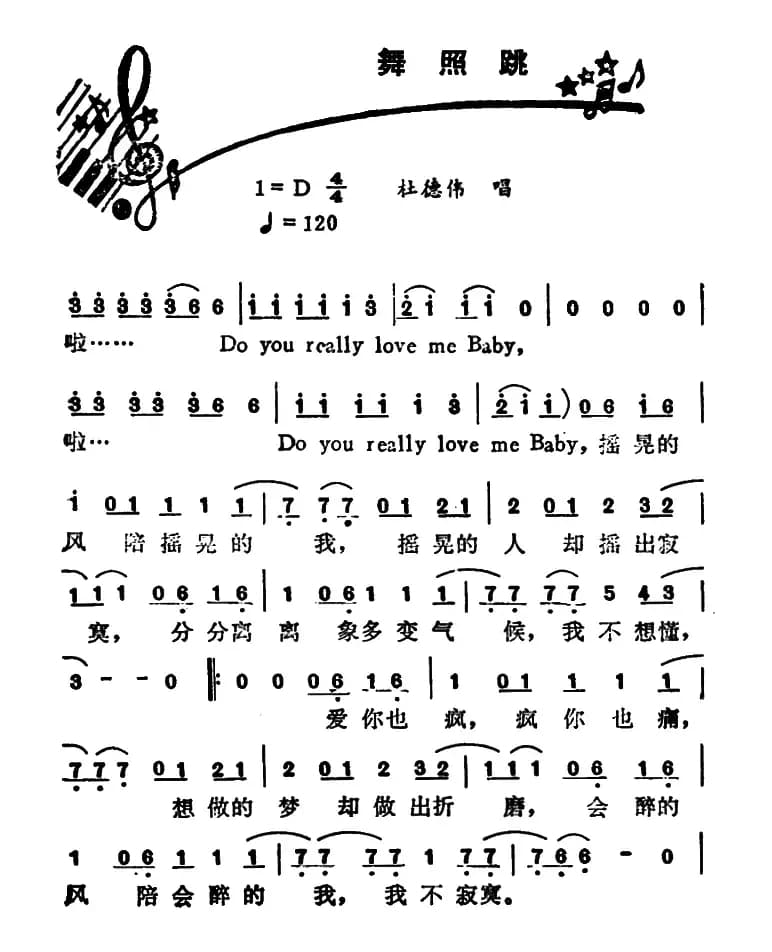 舞照跳
1=D 4/4 杜德伟 唱
♩=120
3 3 3 3 3 6 6 | 1 1 1 1 1 3 | 2 1 1 1 0 | 0 0 0 0 |
啦…… Do you really love me Baby,
3 3 3 3 3 6 6 | 1 1 1 1 1 3 | 2 1 1) 0 6 1 6
啦… Do you really love me Baby, 摇晃的
1 0 1 1 1 1 | 7 7 7 0 1 2 1 | 2 0 1 2 3 2 |
风 陪摇晃的 我, 摇晃的人 却摇出寂
1 1 1 0 6 1 6 | 1 0 6 1 1 1 | 7 7 7 7 5 4 3 |
寞, 分分离离 象多变气 候, 我不想懂,
3 - - 0 ‖: 0 0 0 6 1 6 | 1 0 1 1 1 1 |
爱你也疯, 疯你也痛,
7 7 7 0 1 2 1 | 2 0 1 2 3 2 | 1 1 1 0 6 1 6 |
想做的梦 却做出折 磨, 会醉的
1 0 6 1 1 1 | 7 7 7 7 1 7 7 | 7 6 6 - 0 |
风 陪会醉的 我, 我不寂寞。